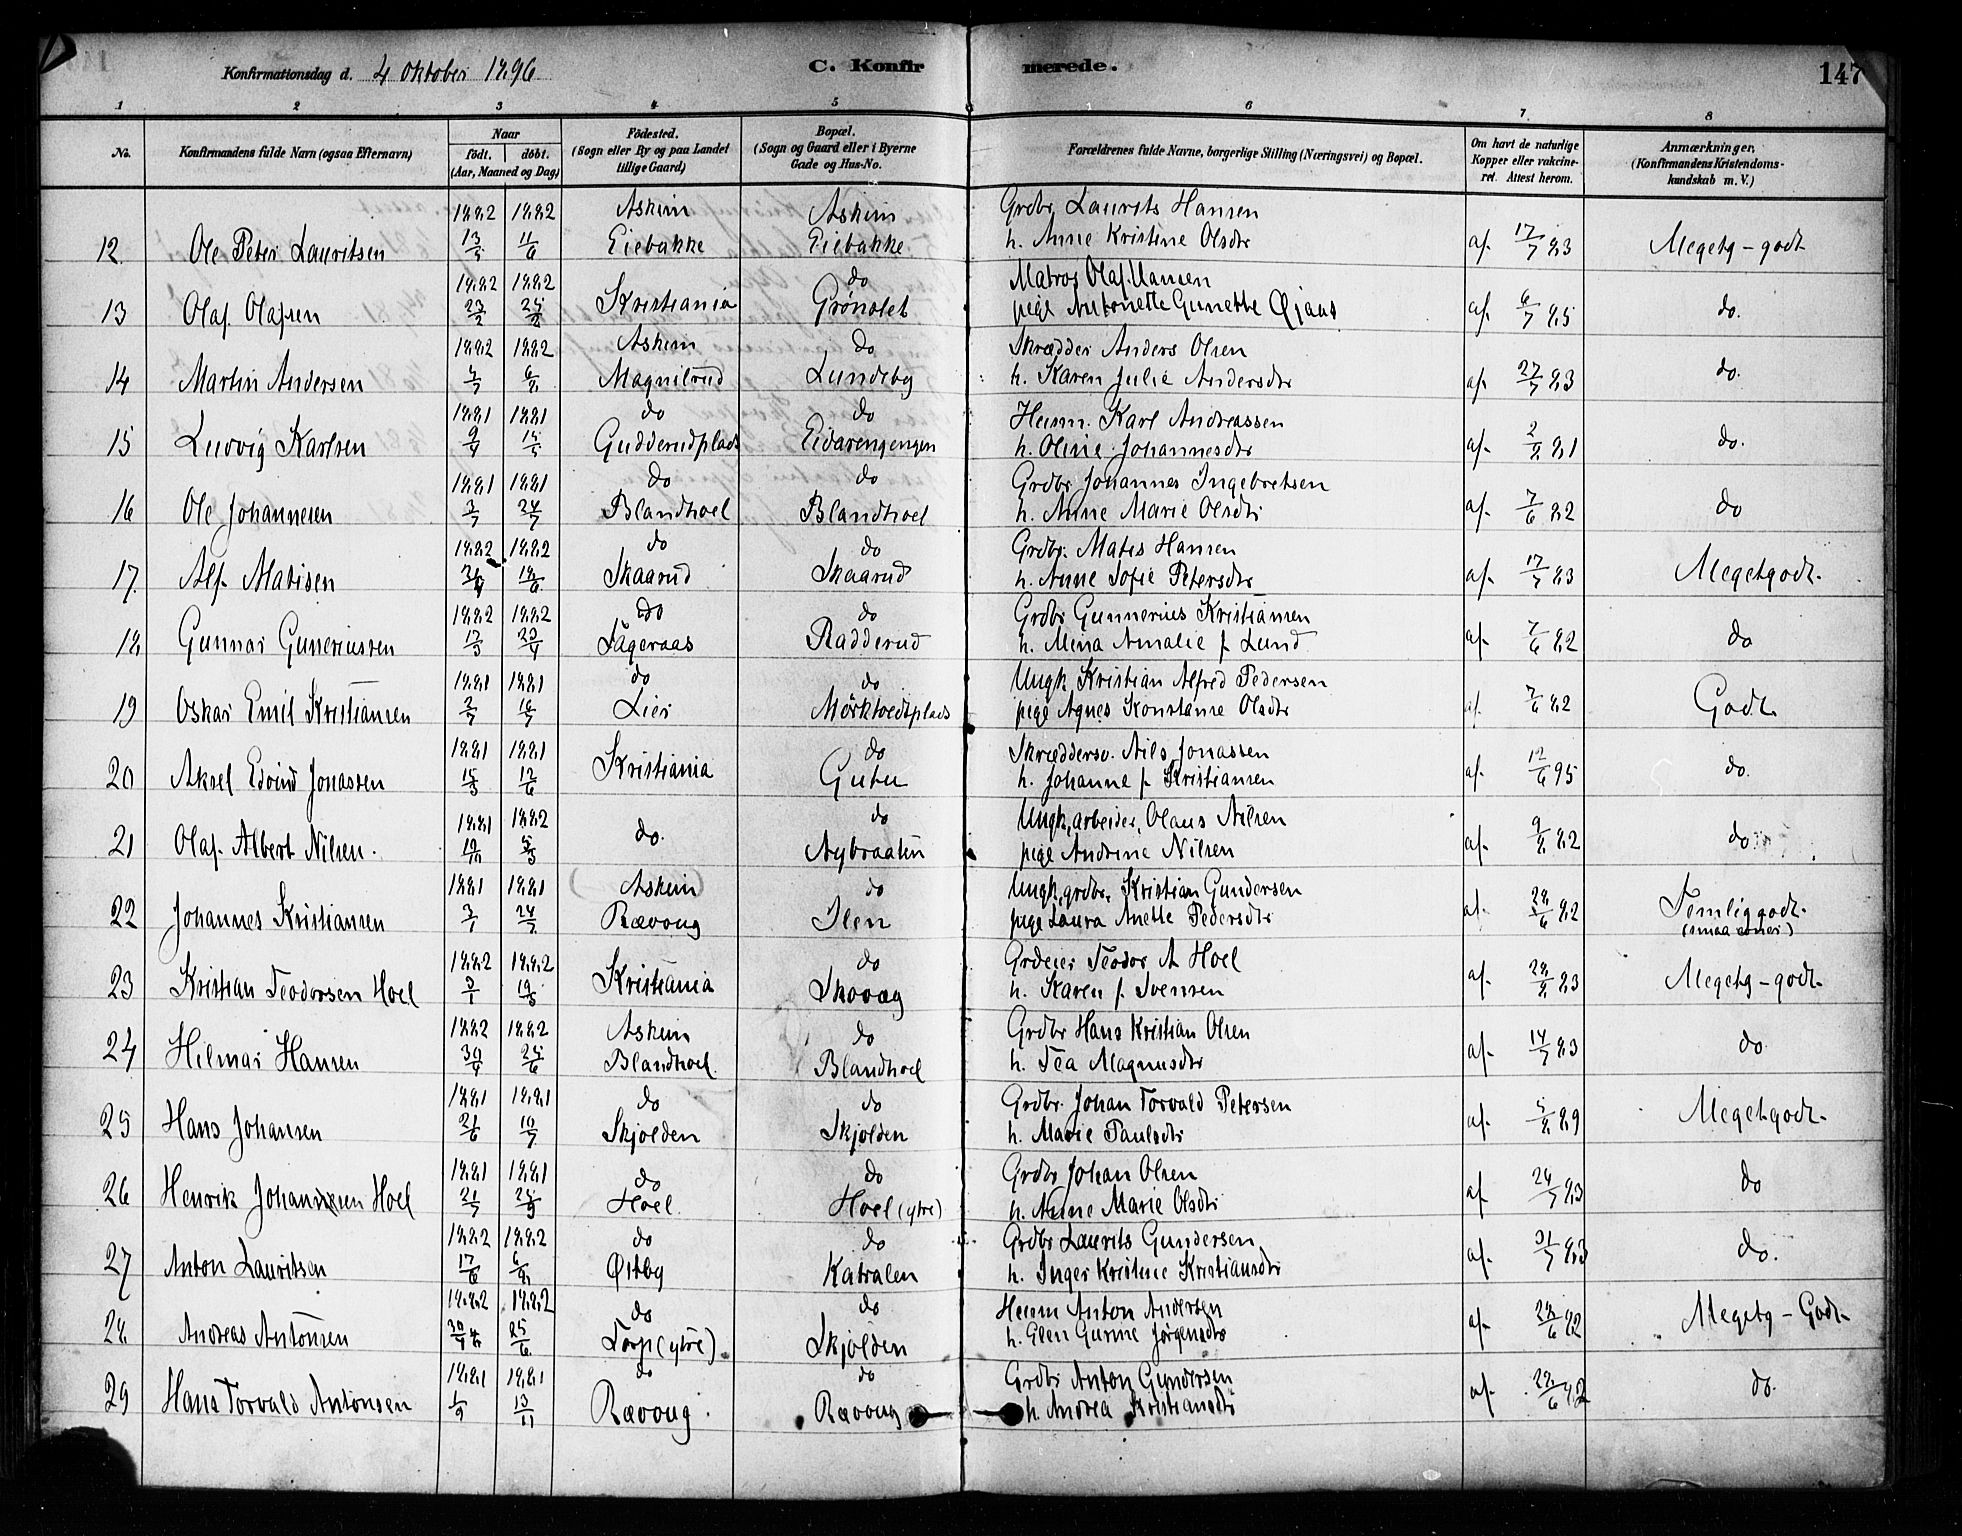 Konfirmationsdag d. 4 Oktober 1896
C. Konfirmerede.
147
1 2 3 4 5 6 7. 8
No.
Konfirmandens fulde Navn (ogsaa Efternavn)
Naar
født. døbt.
(Aar, Maaned og Dag)
Fødested.
(Sogn eller By og paa Landet
tillige Gaard)
Bopæl.
(Sogn og Gaard eller i Byerne
Gade og Hus-No.
Forældrenes fulde Navne, borgerlige Stilling (Næringsvei) og Bopæl.
Om havt de naturlige
Kopper eller vakcine-
ret. Attest herom.
Anmærkninger,
(Konfirmandens Kristendoms-
kundskab m. V.)
1882 1882 Askim Askim Grdbr. Laurits Hansen
12. Ole Peter Lauritsen 13/5 11/6 Eiebakke Eiebakke h. Anne Kristine Olsdtr af. 17/7 83 Megetg - godt
1882 1882 do Matros Olaf Hansen
13 Olaf Olafsen Kristiania Grønslet pige Antonette Gunette af. 6/7 85 do.
1882 1882 Askim do Skrædder Anders Olsen
14 Martin Andersen Magnilrud Lundeby h. Karen Julie Andersdtr af. 27/7 83 do.
1881 1881 do do Husm. Karl Andreassen
15 Ludvig Karlsen Gudderudplads Eidarengengen h. Oline Johannesdtr af. 2/8 81 do.
1881 1881 do do Grdbr Johannes Ingebretsen
16 Ole Johannesen 3/7 24/7 Blandhoel Blandhoel h. Anne Marie Olsdtr af. 7/6 82 do
1882 1882 do do Grdbr. Matis Hansen
17. Alf Matisen Skaarud Skaarud h. Anne Sofie Petersdtr af. 17/7 83 Megetgodt.
1882 1882 do do Grdbr Gunnerius Kristiansen
18. Gunnar Guneriussen 13/3 23/4 Lageraas Radderud h. Mina Amalie f. Lund af. 7/6 82 do
1881 1881 do do Ungk. Kristian Alfred Pedersen
19 Oskar Emil Kristiansen Lier Mörktvedtplads pige Agnes Konstanse Olsdtr af. 7/6 82 Godt.
1881 1881 do Skræddersv. Nils Jonassen
20 Aksel Edvind Jonassen 15/3 12/6 Kristiania Gutu h. Johanne f. Kristiansen af. 12/6 95 do.
1881 1882 do Ungk, arbeider, Olaus Nilsen
21 Olaf Albert Nilsen. 19/11 5/3 do. Nybraaten pige Andrine Nilsen af. 9/8 82 do
1881 1881 Askim do Ungk, grdbr, Kristian Gundersen
22 Johannes Kristiansen Rævoug Ilen pige Laura Anette Pedersdtr af. 28/6 82 Temliggodt.
(smaa evner)
1882 1882 do Grdeier Teodor A Hoel
23 Kristian Teodorsen Hoel 3/1 19/3 Kristiania Skovæg h. Karen f. Svensen af. 28/8 83 Megetg - godt.
1882 1882 Askim do Grdbr Hans Kristian Olsen
24 Hilmar Hansen 30/4 25/6 Blandhoel. Blandhoel h. Tea Magnusdtr af. 14/7 83 do.
1881 1881 do do Grdbr. Johan Torvald Petersen
25 Hans Johansen 21/6 10/7 Skjolden Skjolden h. Marie Paulsdtr af. 5/8 89 Megetgodt.
1881 1881 do do Grdbr Johan Olsen
26 Henrik Johansen Hoel Hoel. Hoel (ytre) h. Anne Marie Olsdtr af 24/7 83 do
1882 1882 do do Grdbr Laurits Gundersen
27 Anton Lauritsen 17/6 6/8 Østby Katralen h. Inger Kristine Kristiansdtr af 31/7 83 do.
1882 1882 do do Husm Anton Andersen
28. Andreas Antonsen 30/4 25/6 Torp (ytre) Skjolden h. Elen Gurine Jørgensdtr af. 28/6 82 Megetg - Godt.
1881 1881 do do Grdbr Anton Gundersen
29 Hans Torvald Antonsen 1/9 13/11 Rævoug. Rævoug h. Andrea Kristiansdtr af. 28/6 82 do.